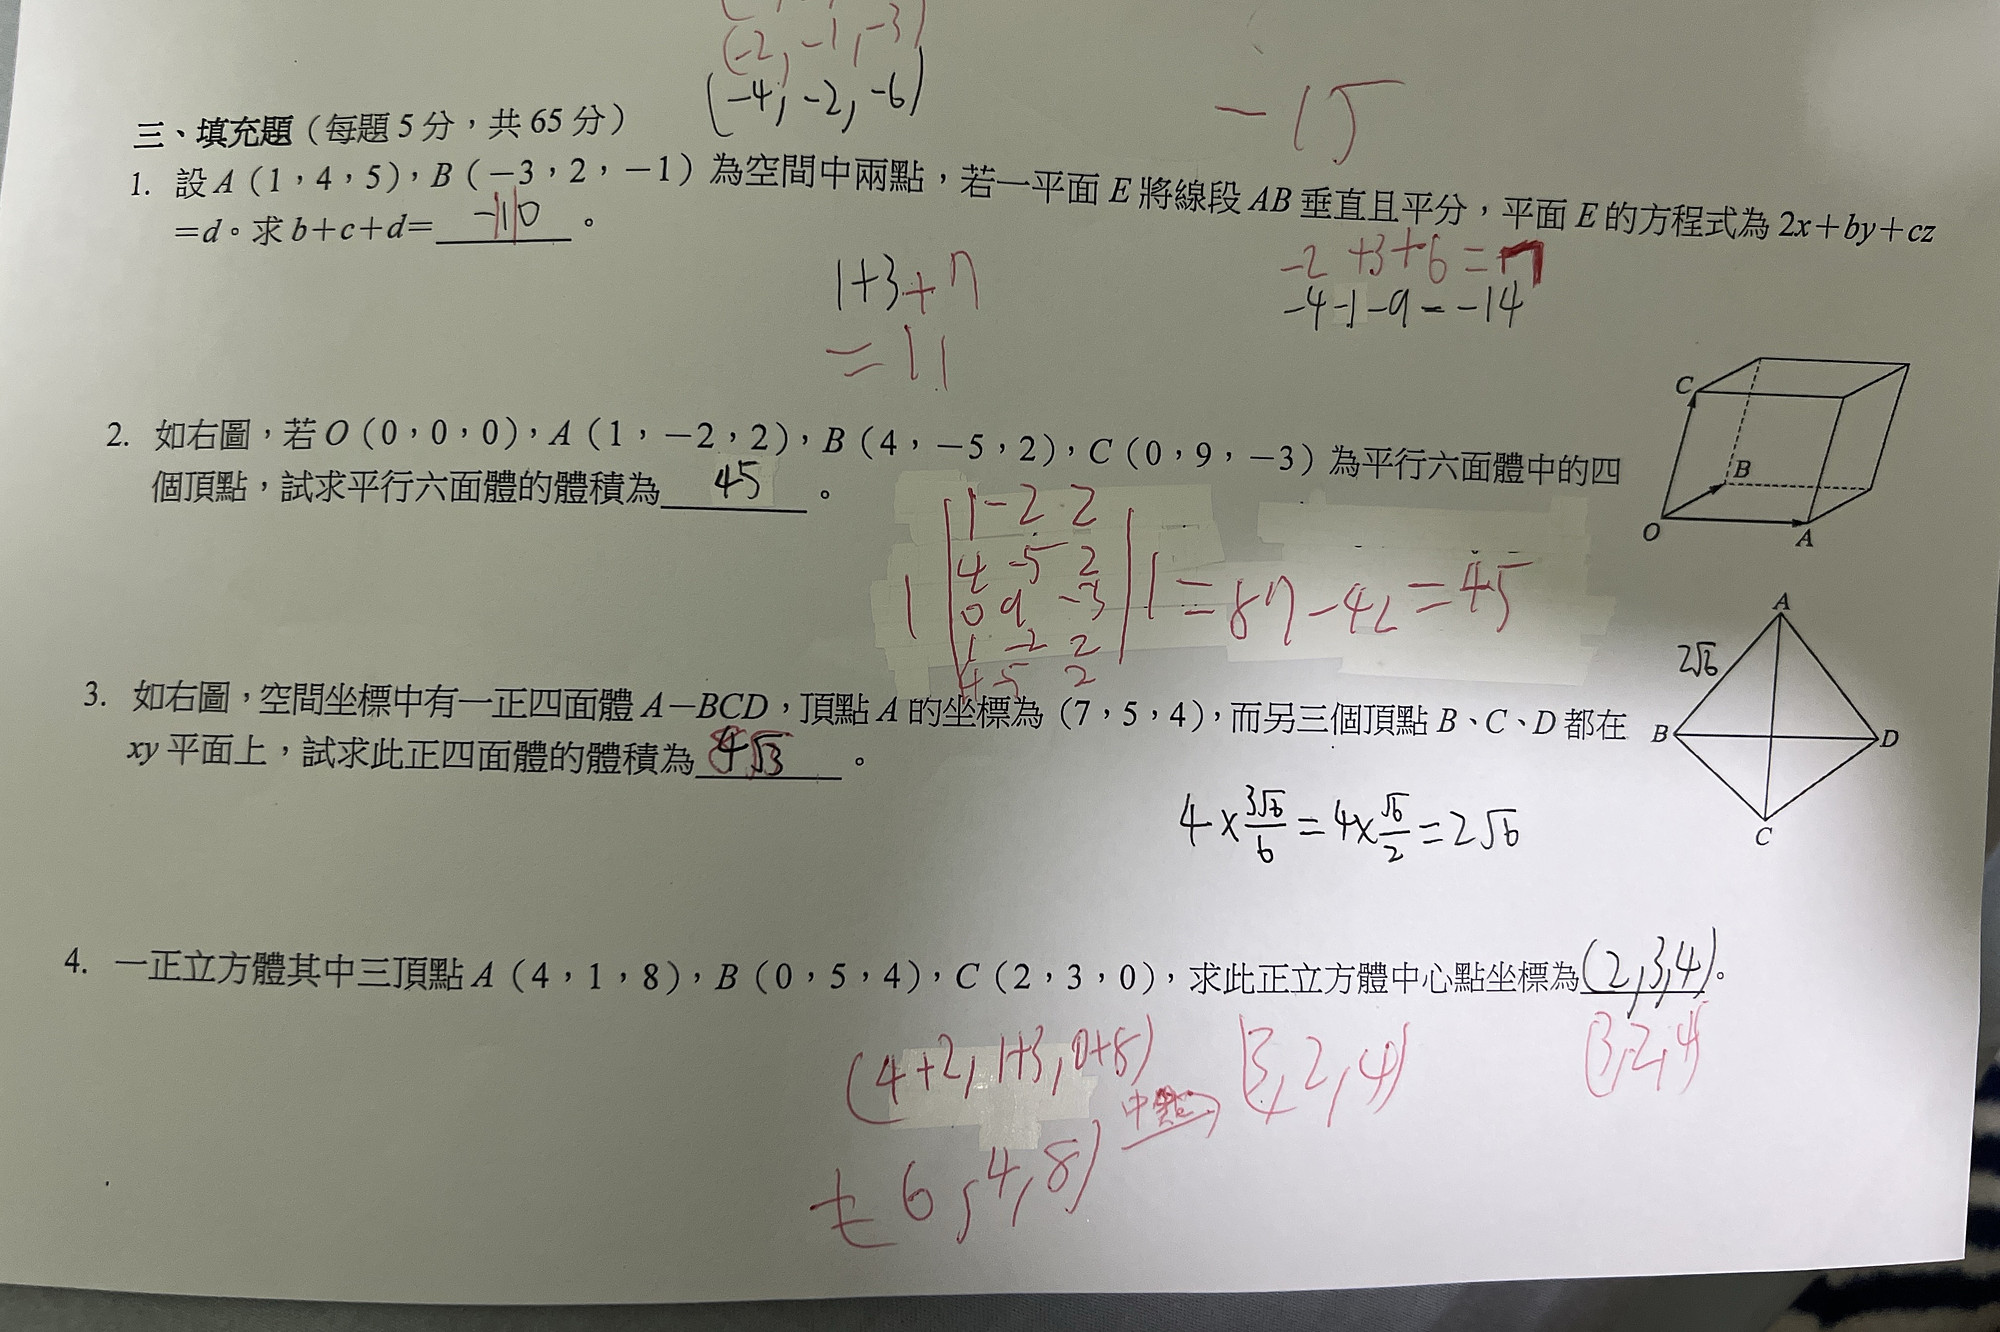 (-2, -1, -3)
(-4, -2, -6)
-15
三、填充題（每題5分，共65分）
1. 設A（1，4，5），B（－3，2，－1）為空間中兩點，若一平面E將線段AB垂直且平分，平面E的方程式為2x＋by＋cz
＝d。求b＋c＋d＝ 。
-2 +3+6=7
1+3+7
-4-1-9=-14
=11
C
2. 如右圖，若O（0，0，0），A（1，－2，2），B（4，－5，2），C（0，9，－3）為平行六面體中的四
B
個頂點，試求平行六面體的體積為 45 。
O
A
1 -2 2
4 -5 2
| 0 9 -3 | =87-42=45
1 -2 2
4 -5 2
A
2√6
3. 如右圖，空間坐標中有一正四面體A－BCD，頂點A的坐標為（7，5，4），而另三個頂點B、C、D都在
B
D
xy平面上，試求此正四面體的體積為 。
4×3√6/6=4×√6/2=2√6
C
4. 一正立方體其中三頂點A（4，1，8），B（0，5，4），C（2，3，0），求此正立方體中心點坐標為(2,3,4)。
(4+2, 1+3, 0+8)
中點
(3,2,4)
(3,2,4)
6,4,8)